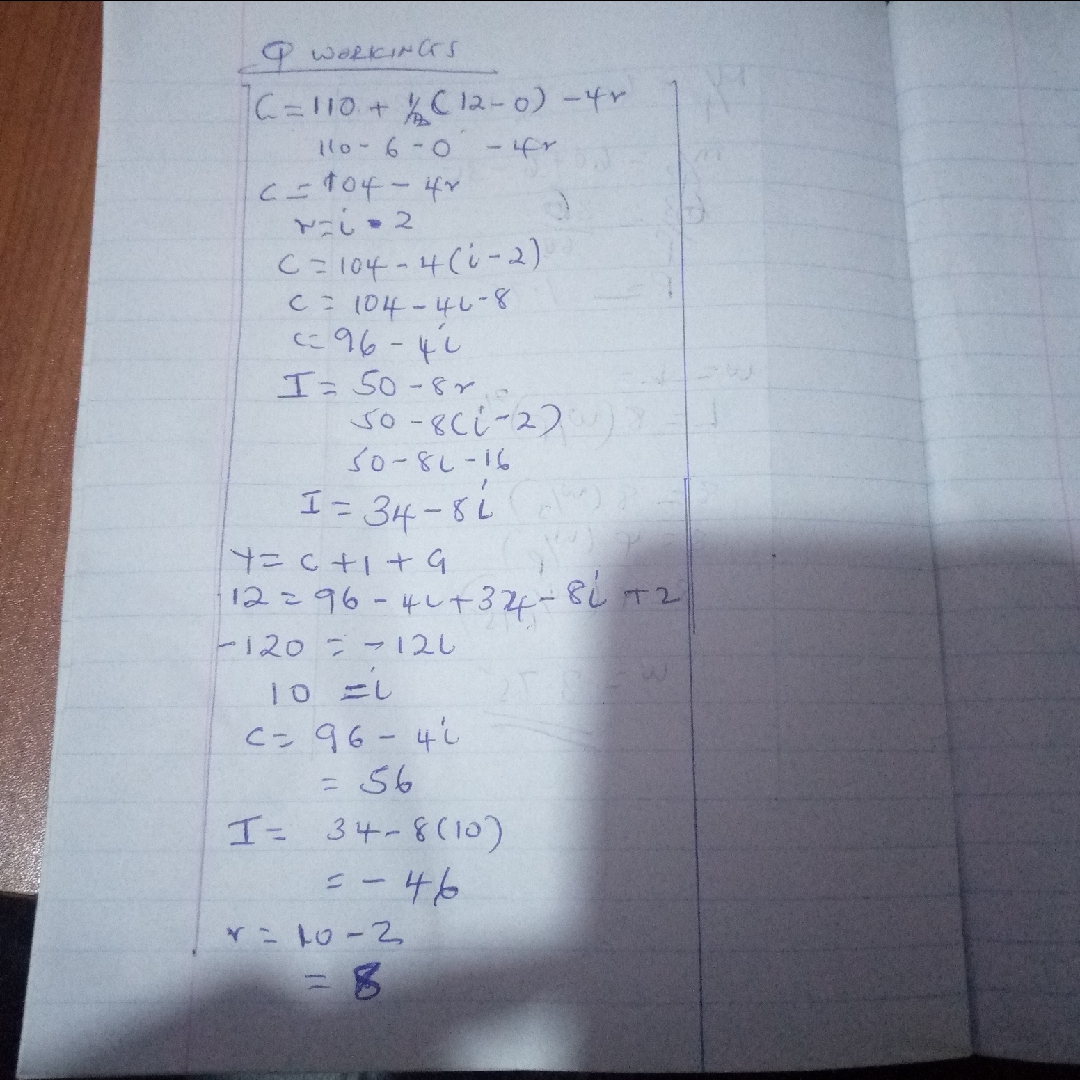 Q WORKINGS
C = 110 + 1/2 (12-0) - 4r
110 - 6 - 0 - 4r
C = 104 - 4r
r = i - 2
C = 104 - 4(i - 2)
C = 104 - 4i - 8
C = 96 - 4i
I = 50 - 8r
50 - 8(i - 2)
50 - 8i - 16
I = 34 - 8i
Y = C + I + G
12 = 96 - 4i + 34 - 8i + 2
-120 = -12i
10 = i
C = 96 - 4i
= 56
I = 34 - 8(10)
= - 46
r = 10 - 2
= 8